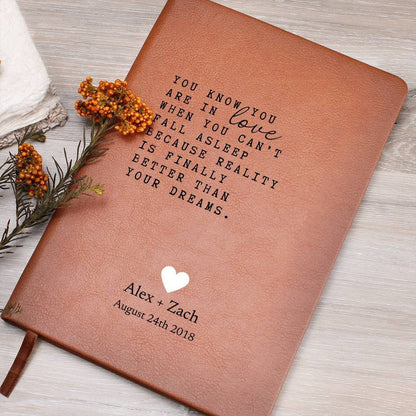 YOU KNOW YOU
ARE IN love
WHEN YOU CAN'T
FALL ASLEEP
BECAUSE REALITY
IS FINALLY
BETTER THAN
YOUR DREAMS.
Alex + Zach
August 24th 2018